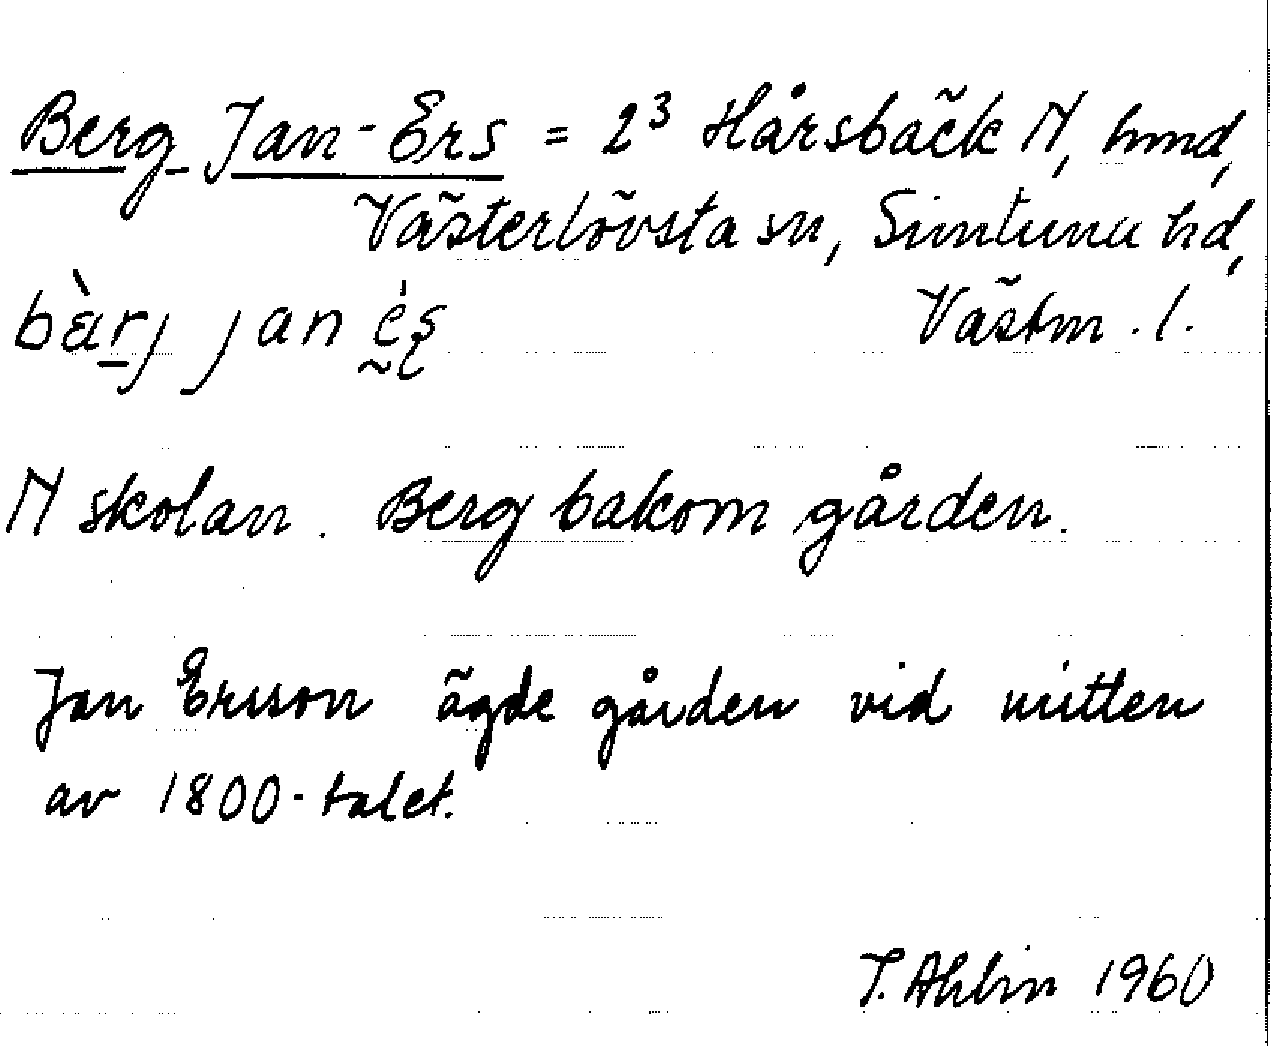 Berg Jan-Ers = 2³ Hårsbäck N, hmd,
Västerlövsta sn, Simtuna hd,
bà̱rj jan ḛ́ʂ Västm. l.
N skolan. Berg bakom gården.
Jan Ersson ägde gården vid mitten
av 1800-talet.
T. Ahlin 1960